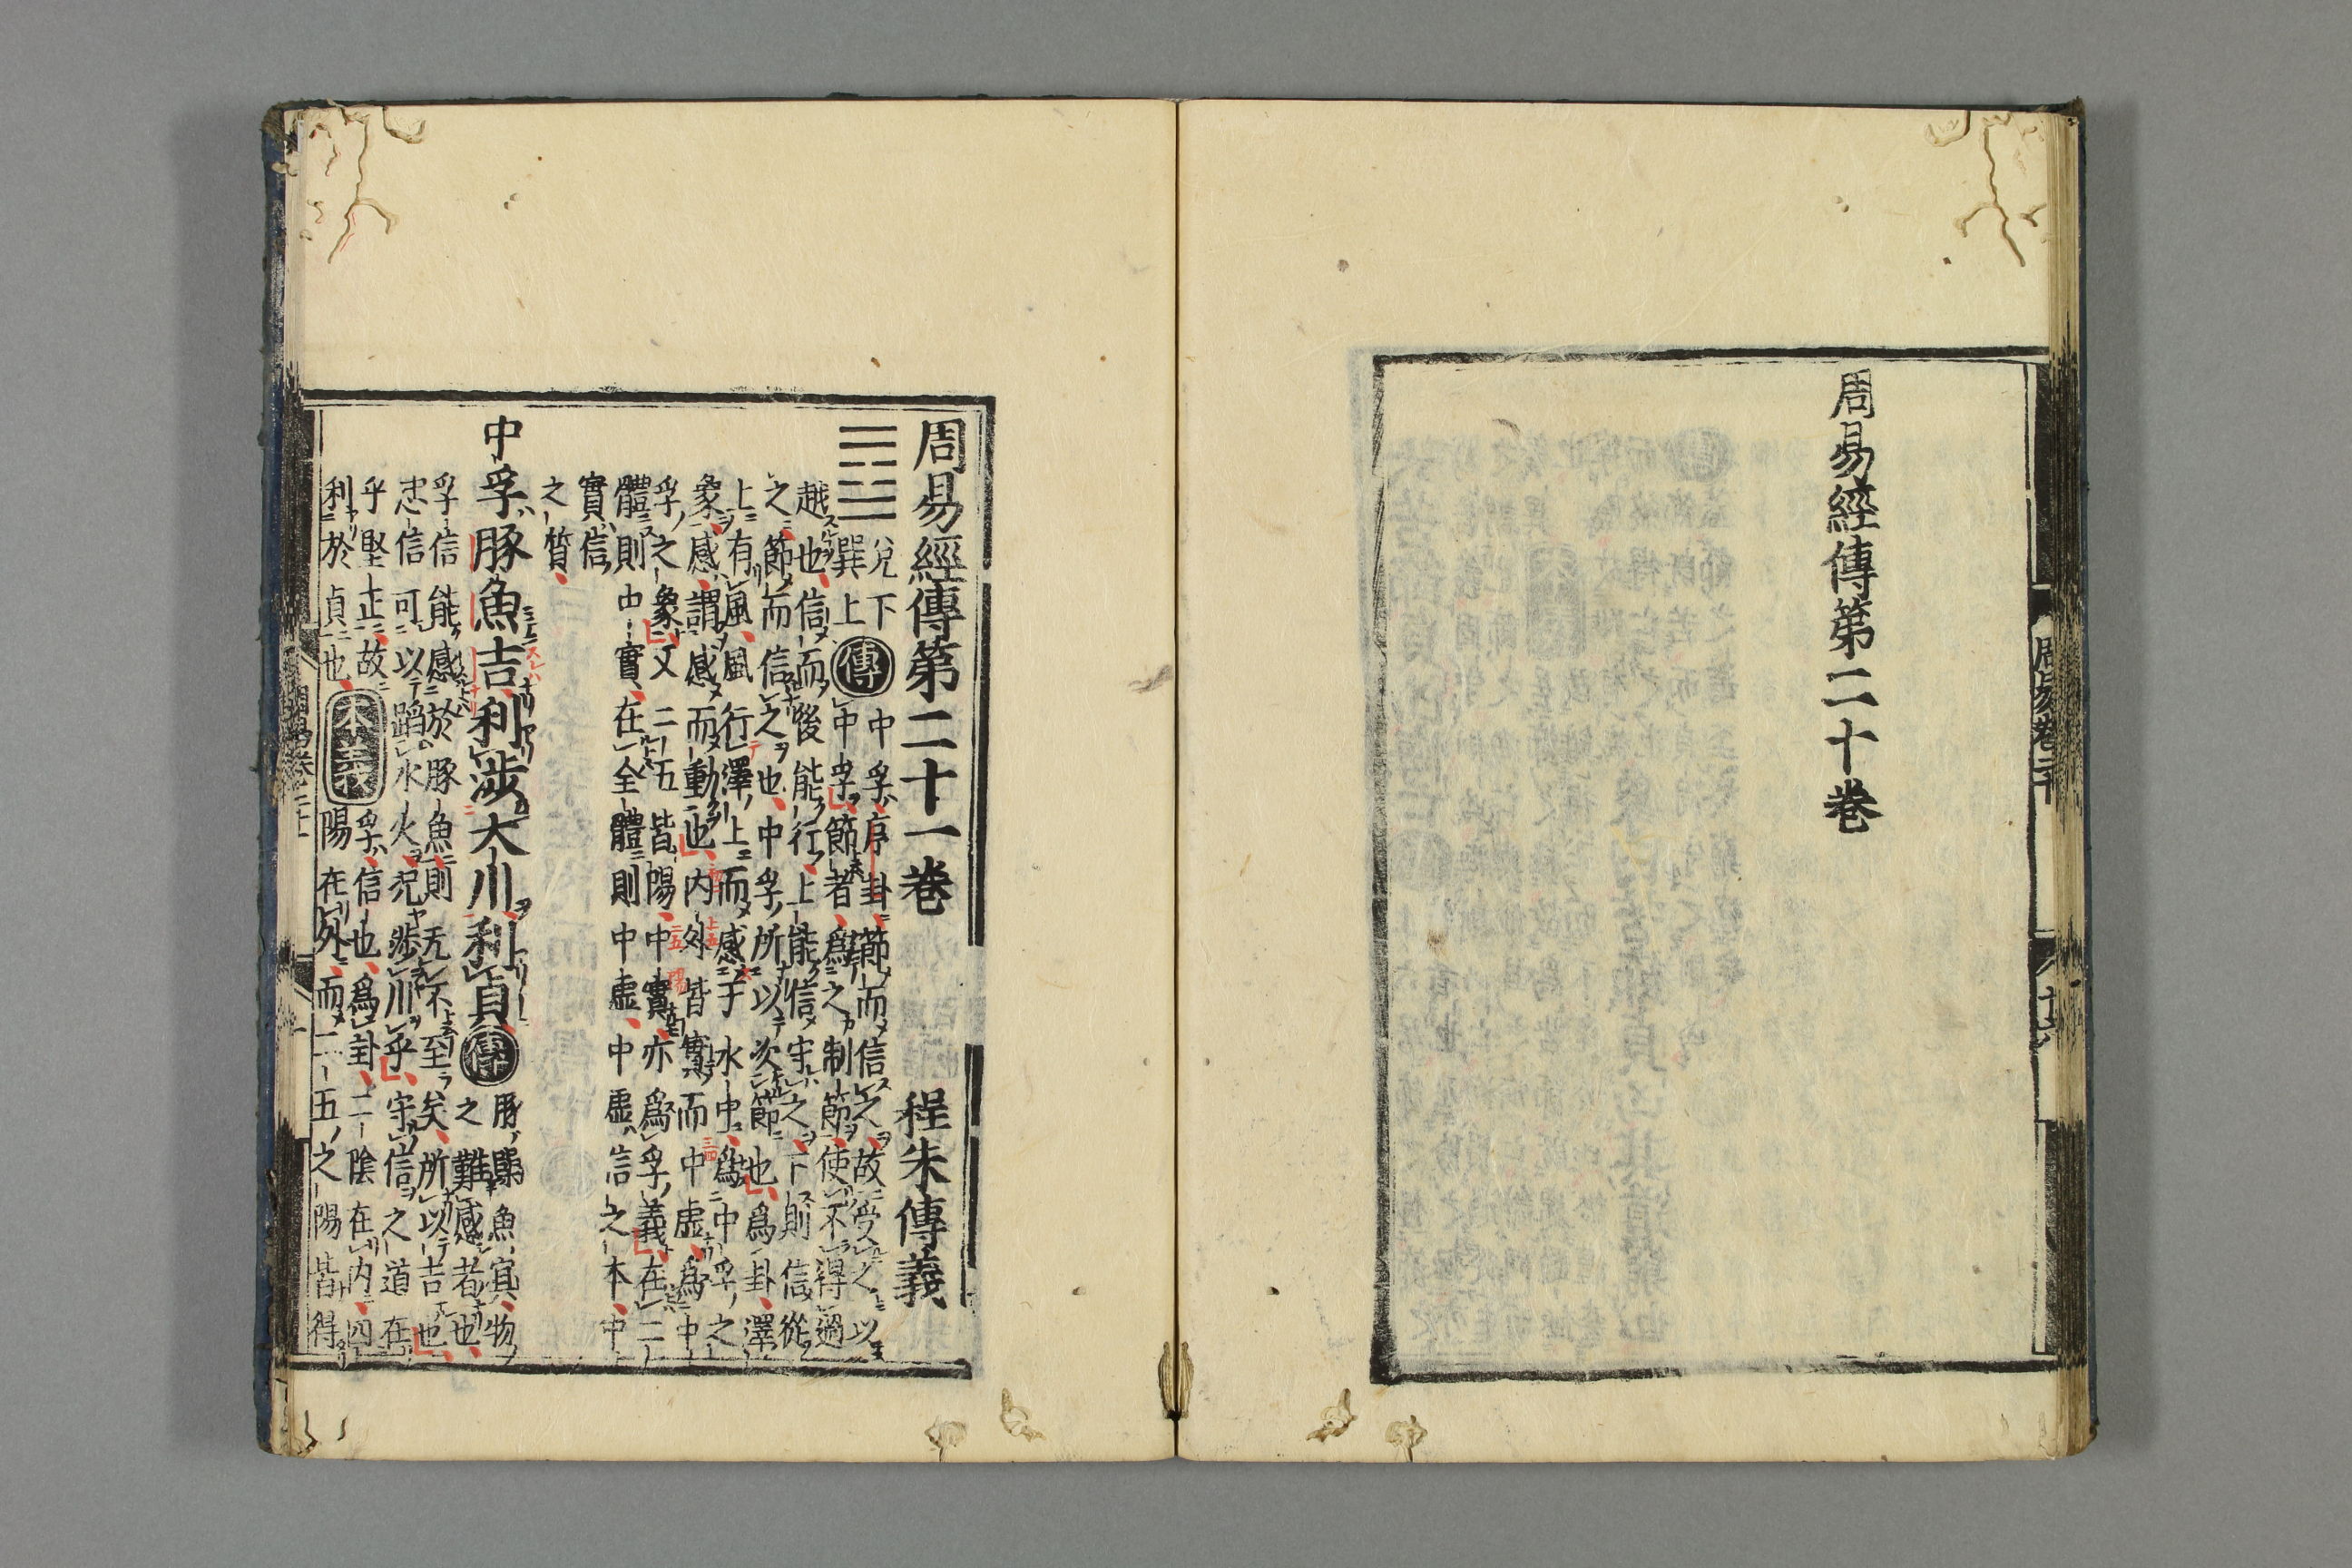 周易經傳第二十卷
周易卷二十
周易經傳第二十一卷　程朱傳義
䷼兌下
巽上
傳
中孚序卦節而信之故受之以
中孚節者爲之制節使不得過
越也信而後能行上能信守之下則信從
之節而信之也中孚所以次節也爲卦澤
上有風風行澤上而感于水中爲中孚之
象感謂感而動也內外皆實而中虛爲中
孚之象又二五皆陽中實亦爲孚義在二
體則中實在全體則中虛中虛信之本中
實信
之質
中孚豚魚吉利涉大川利貞
傳
豚躁魚冥物
之難感者也
孚信能感於豚魚則无不至矣所以吉也
忠信可以蹈水火況涉川乎守信之道在
乎堅正故
利於貞也
本義
孚信也爲卦二陰在內四
陽在外而二五之陽皆得